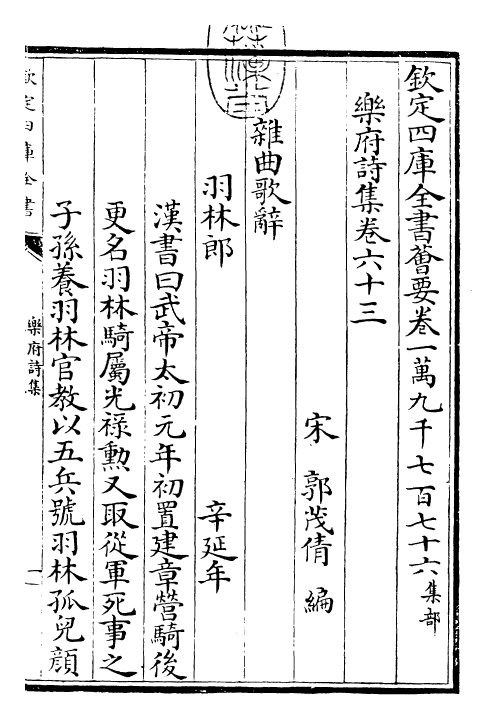 欽定四庫全書薈要卷一萬九千七百七十六集部
樂府詩集卷六十三
宋 郭茂倩 編
雜曲歌辭
羽林郎 辛延年
漢書曰武帝太初元年初置建章營騎後
更名羽林騎屬光祿勲又取從軍死事之
子孫養羽林官教以五兵號羽林孤兒顔
欽定四庫全書
樂府詩集
一